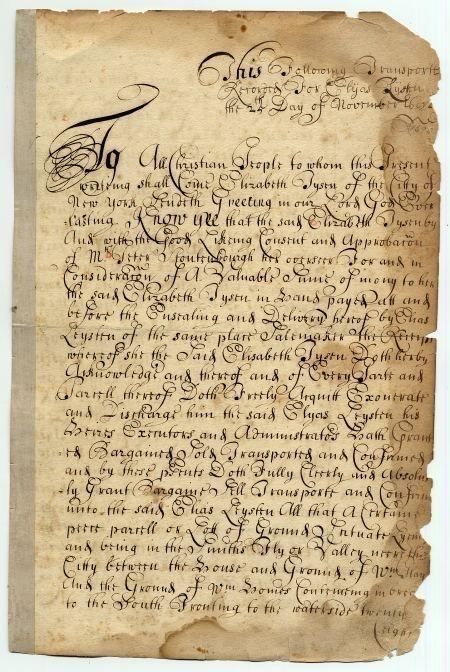 This Following Transporte
Recorded For Elyas
the 24th Day of November
To All Christian People to whom this Present
writeing shall Come Elizabeth Tysen of the Citty of
New York Sendeth Greeting in our Lord God Ever
lasting Know yee that the said Elizabeth Tysen by
And with the Good Likeing Consent and Approbacon
of Mr Peter her overseer For and in
Consideracon of A Valuable Sume of mony to her
the said Elizabeth Tysen in hand payed att and
before the Ensealing and Delivery hereof by Elias
of the same place the Receipt
whereof she the said Elisabeth Tysen Doth herby
Acknowledge and thereof and of Every Parte and
Parcell thereof Doth Freely Acquitt Exonerate
and Discharge him the said Elyas his
Heires Executors and Administrators hath Grant
ed Bargained Sold Transported and Confirmed
and by these psents Doth Fully Cleerly and Absolu
ly Grant Bargaine Sell Transporte and Confirm
unto the said Elias All that A Certaine
peece parcell or Lott of Ground Scituate Lyeing
and being in the Smiths Fly or Valley neere the
Citty between the House and Ground of Wm
And the Ground of Wm Bones Conteineing in
to the South Fronting to the waterside twenty
eight